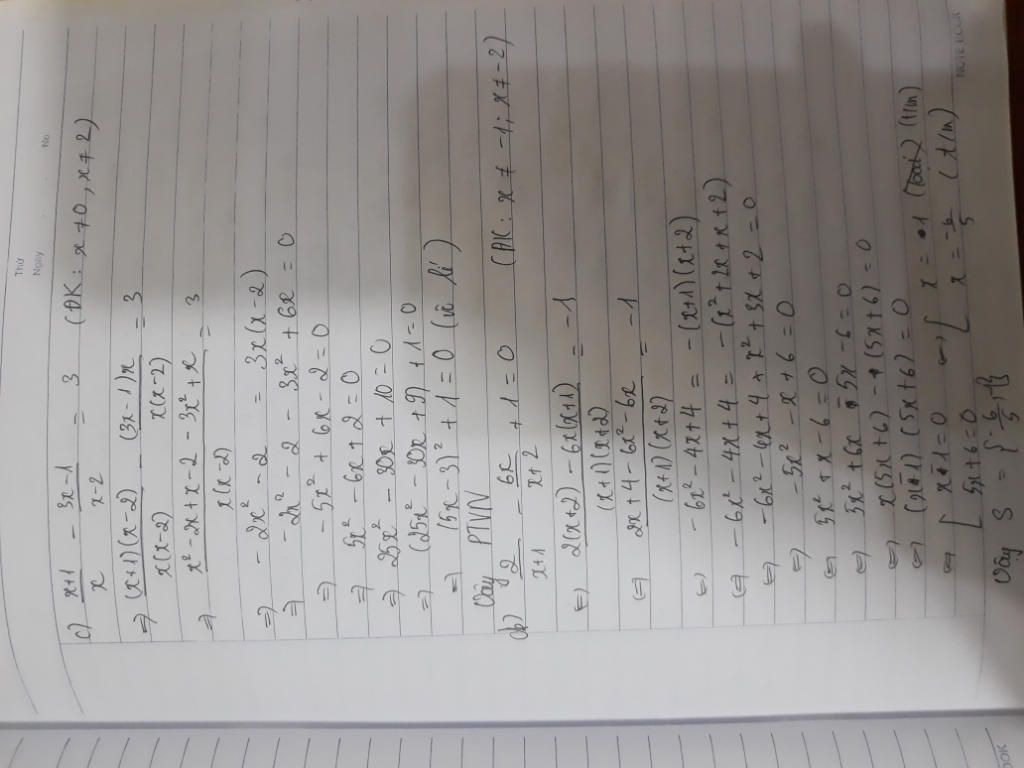 Thứ
Ngày No.
c) x+1/x - 3x-1/x-2 = 3 (ĐK: x ≠ 0, x ≠ 2)
=> (x+1)(x-2)/x(x-2) - (3x-1)x/x(x-2) = 3
=> x² - 2x + x - 2 - 3x² + x/x(x-2) = 3
=> - 2x² - 2 = 3x(x-2)
=> - 2x² - 2 - 3x² + 6x = 0
=> - 5x² + 6x - 2 = 0
=> 5x² - 6x + 2 = 0
=> 25x² - 30x + 10 = 0
=> (25x² - 30x + 9) + 1 = 0
=> (5x - 3)² + 1 = 0 (vô lí)
Vậy PTVN
d) 2/x+1 - 6x/x+2 + 1 = 0 (ĐK: x ≠ -1; x ≠ -2)
<=> 2(x+2) - 6x(x+1)/(x+1)(x+2) = -1
<=> 2x+4 - 6x² - 6x/(x+1)(x+2) = -1
<=> - 6x² - 4x + 4 = - (x+1)(x+2)
<=> - 6x² - 4x + 4 = - (x² + 2x + x + 2)
<=> - 6x² - 4x + 4 + x² + 3x + 2 = 0
<=> - 5x² - x + 6 = 0
<=> 5x² + x - 6 = 0
<=> 5x² + 6x - 5x - 6 = 0
<=> x(5x+6) - (5x+6) = 0
<=> (x-1)(5x+6) = 0
<=> [ x-1=0 <=> [ x = 1 (tm)
5x+6=0 x = -6/5 (t/m)
Vậy S = { -6/5; 1}
NOTE BOOK